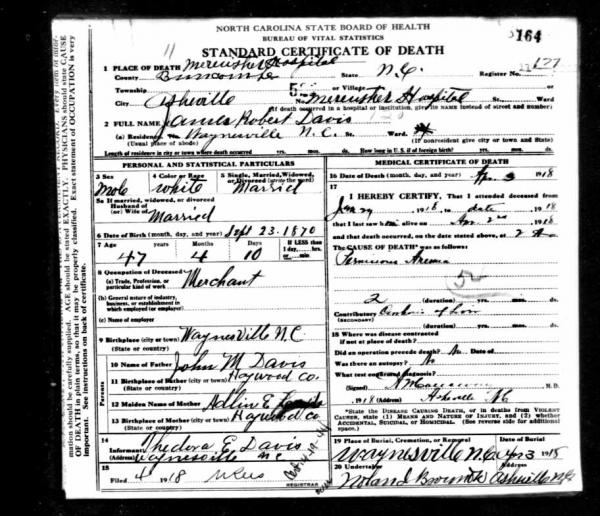 NORTH CAROLINA STATE BOARD OF HEALTH
BUREAU OF VITAL STATISTICS
164
STANDARD CERTIFICATE OF DEATH
1 PLACE OF DEATH Hospital
County Buncombe State N.C. Register No. 127
Township or Village
City Asheville No. Hospital St. Ward
(If death occurred in a hospital or institution, give its NAME instead of street and number)
2 FULL NAME James Robert Davis
(a) Residence. No. Waynesville N.C. St. Ward.
(Usual place of abode) (If nonresident give city or town and State)
Length of residence in city or town where death occurred yrs. mos. ds. How long in U. S. if of foreign birth? yrs. mos. ds.
PERSONAL AND STATISTICAL PARTICULARS
3 Sex 4 Color or Race 5 Single, Married, Widowed, or Divorced (write the word)
Male White Married
5a If married, widowed, or divorced
Husband of
(or) Wife of Married
6 Date of Birth (month, day, and year) Sept 23-1870
7 Age Years Months Days If LESS than 1 day, hrs. or min.
47 4 10
8 Occupation of Deceased
(a) Trade, Profession, or particular kind of work Merchant
(b) General nature of industry, business, or establishment in which employed (or employer)
(c) Name of employer
9 Birthplace (city or town) Waynesville N.C.
(State or country)
Parents
10 Name of Father John M Davis
11 Birthplace of Father (city or town) Haywood Co.
(State or country)
12 Maiden Name of Mother E
13 Birthplace of Mother (city or town) Haywood Co
(State or country)
14 Informant Theodora E. Davis
(Address) Waynesville N.C.
15
Filed 4 1918
REGISTRAR
MEDICAL CERTIFICATE OF DEATH
16 Date of Death (month, day, and year) Apr 2 1918
17
I HEREBY CERTIFY, That I attended deceased from
1918 to date 1918
that I last saw alive on Apr 2 1918
and that death occurred, on the date stated above, at 2
The CAUSE OF DEATH* was as follows:
Pernicious Anemia
52
2 (duration) yrs. mos. ds.
Contributory
(SECONDARY) (duration) yrs. mos. ds.
18 Where was disease contracted
if not at place of death?
Did an operation precede death? No Date of
Was there an autopsy? No
What test confirmed diagnosis?
(Signed) M.D.
, 1918 (Address) Asheville NC
*State the DISEASE CAUSING DEATH, or in deaths from VIOLENT
CAUSES, state (1) MEANS AND NATURE OF INJURY, and (2) whether
ACCIDENTAL, SUICIDAL, or HOMICIDAL. (See reverse side for additional
space.)
19 Place of Burial, Cremation, or Removal Date of Burial
Waynesville N.C. Apr 3 1918
20 Undertaker Address
Noland Asheville N.C.
mation should be carefully supplied. AGE should be stated EXACTLY. PHYSICIANS should state CAUSE
OF DEATH in plain terms, so that it may be properly classified. Exact statement of OCCUPATION is very
important. See instructions on back of certificate.